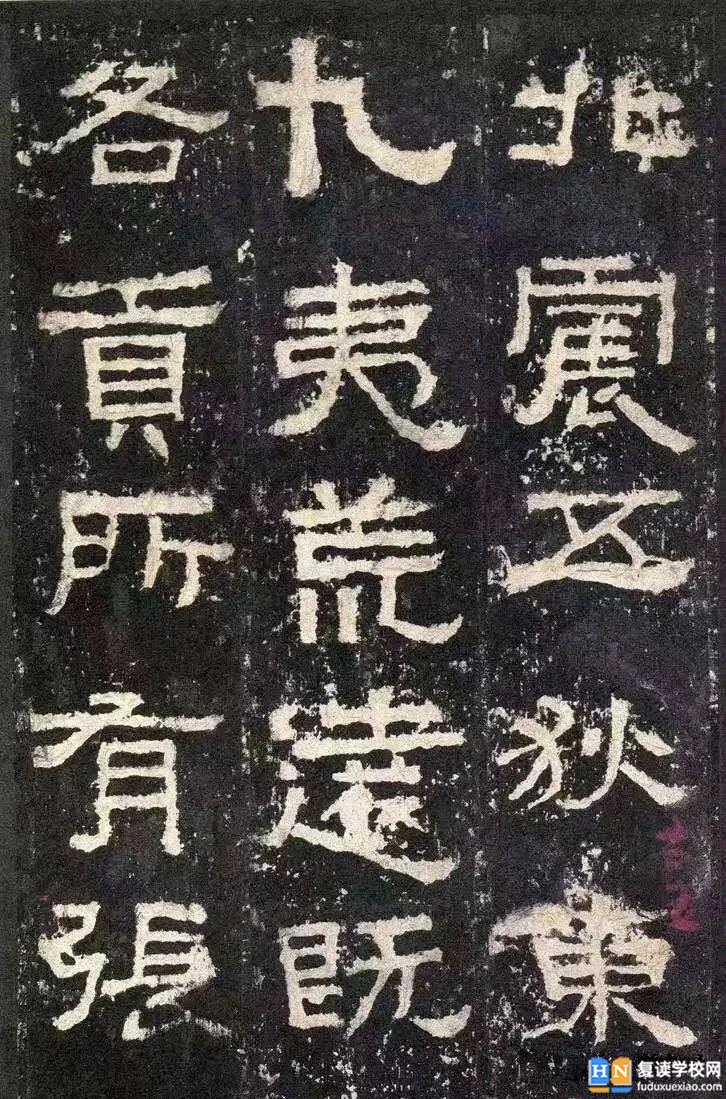 北震五狄東
九夷荒遠既
各貢所有張
HN 复读学校网
fuduxuexiao.com